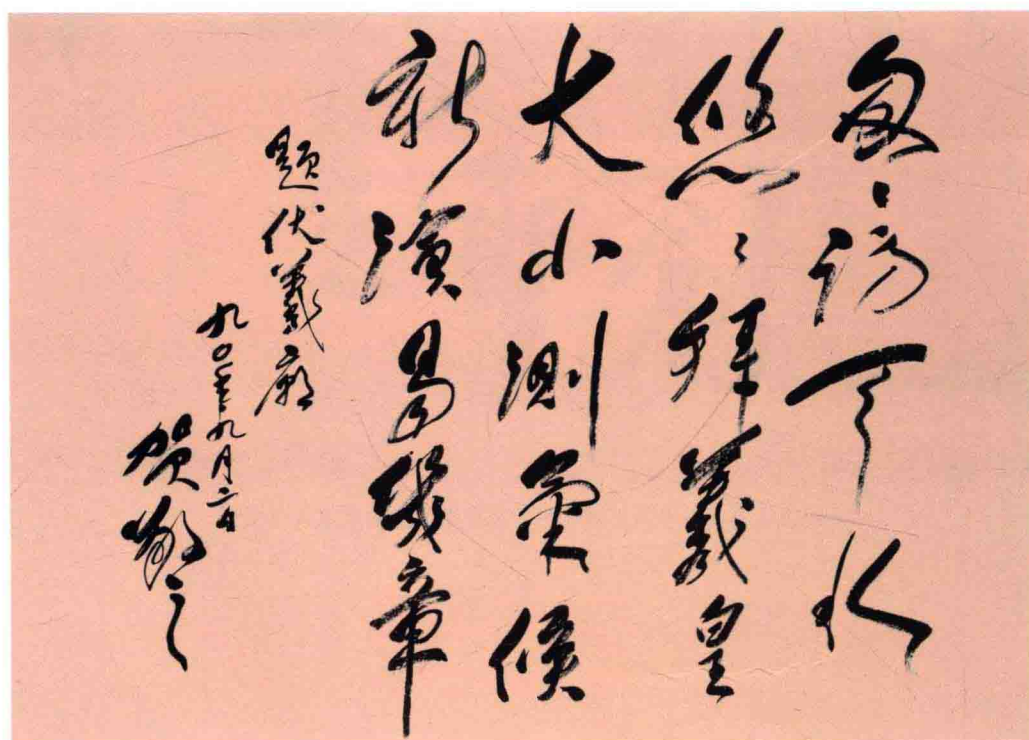 匆匆访天水
悠悠拜羲皇
大小测气候
新演易几章
题伏羲庙
九〇年九月六日
贺敬之